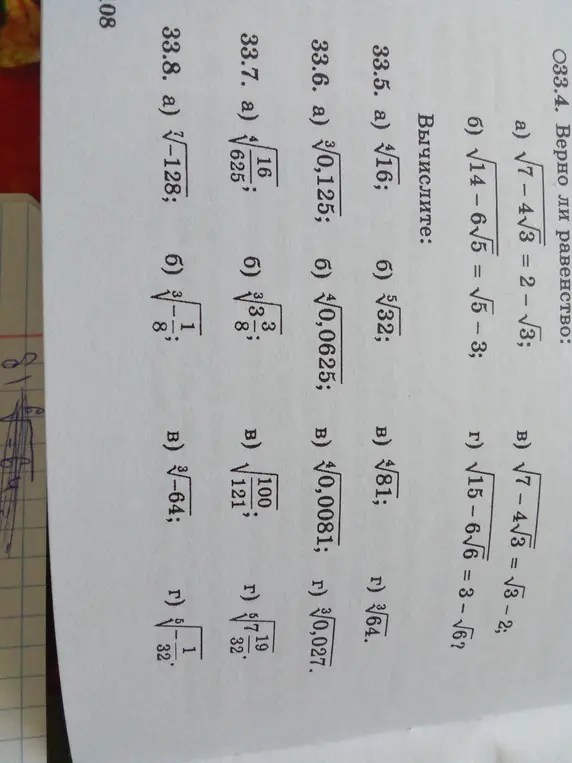 ○33.4. Верно ли равенство:
а) √(7 − 4√3) = 2 − √3; в) √(7 − 4√3) = √3 − 2;
б) √(14 − 6√5) = √5 − 3; г) √(15 − 6√6) = 3 − √6?
Вычислите:
33.5. а) ⁴√16; б) ⁵√32; в) ⁴√81; г) ³√64.
33.6. а) ³√0,125; б) ⁴√0,0625; в) ⁴√0,0081; г) ³√0,027.
33.7. а) ⁴√(16/625); б) ³√(3 3/8); в) √(100/121); г) ⁵√(7 19/32).
33.8. а) ⁷√−128; б) ³√(−1/8); в) ³√−64; г) ⁵√(−1/32).
08